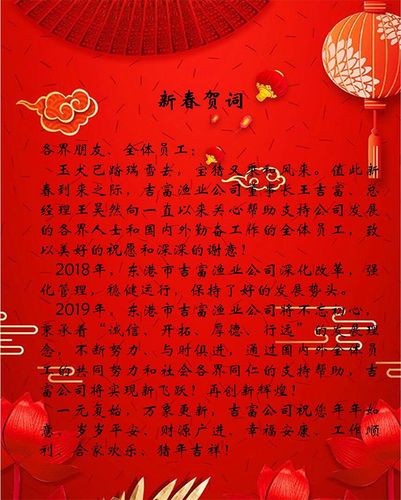 新春贺词
各界朋友、全体员工:
玉犬已踏瑞雪去,宝猪又乘和风来。值此新
春到来之际,吉富渔业公司董事长王吉富、总
经理王昊然向一直以来关心帮助支持公司发展
的各界人士和国内外勤奋工作的全体员工,致
以美好的祝愿和深深的谢意!
2018年,东港市吉富渔业公司深化改革,强
化管理,稳健运行,保持了好的发展势头。
2019年,东港市吉富渔业公司将不忘初心,
秉承着“诚信、开拓、厚德、行远”的发展理
念,不断努力、与时俱进,通过国内外全体员
工的共同努力和社会各界同仁的支持帮助,吉
富公司将实现新飞跃!再创新辉煌!
一元复始,万象更新,吉富公司祝您年年如
意、岁岁平安、财源广进、幸福安康、工作顺
利、合家欢乐、猪年吉祥!